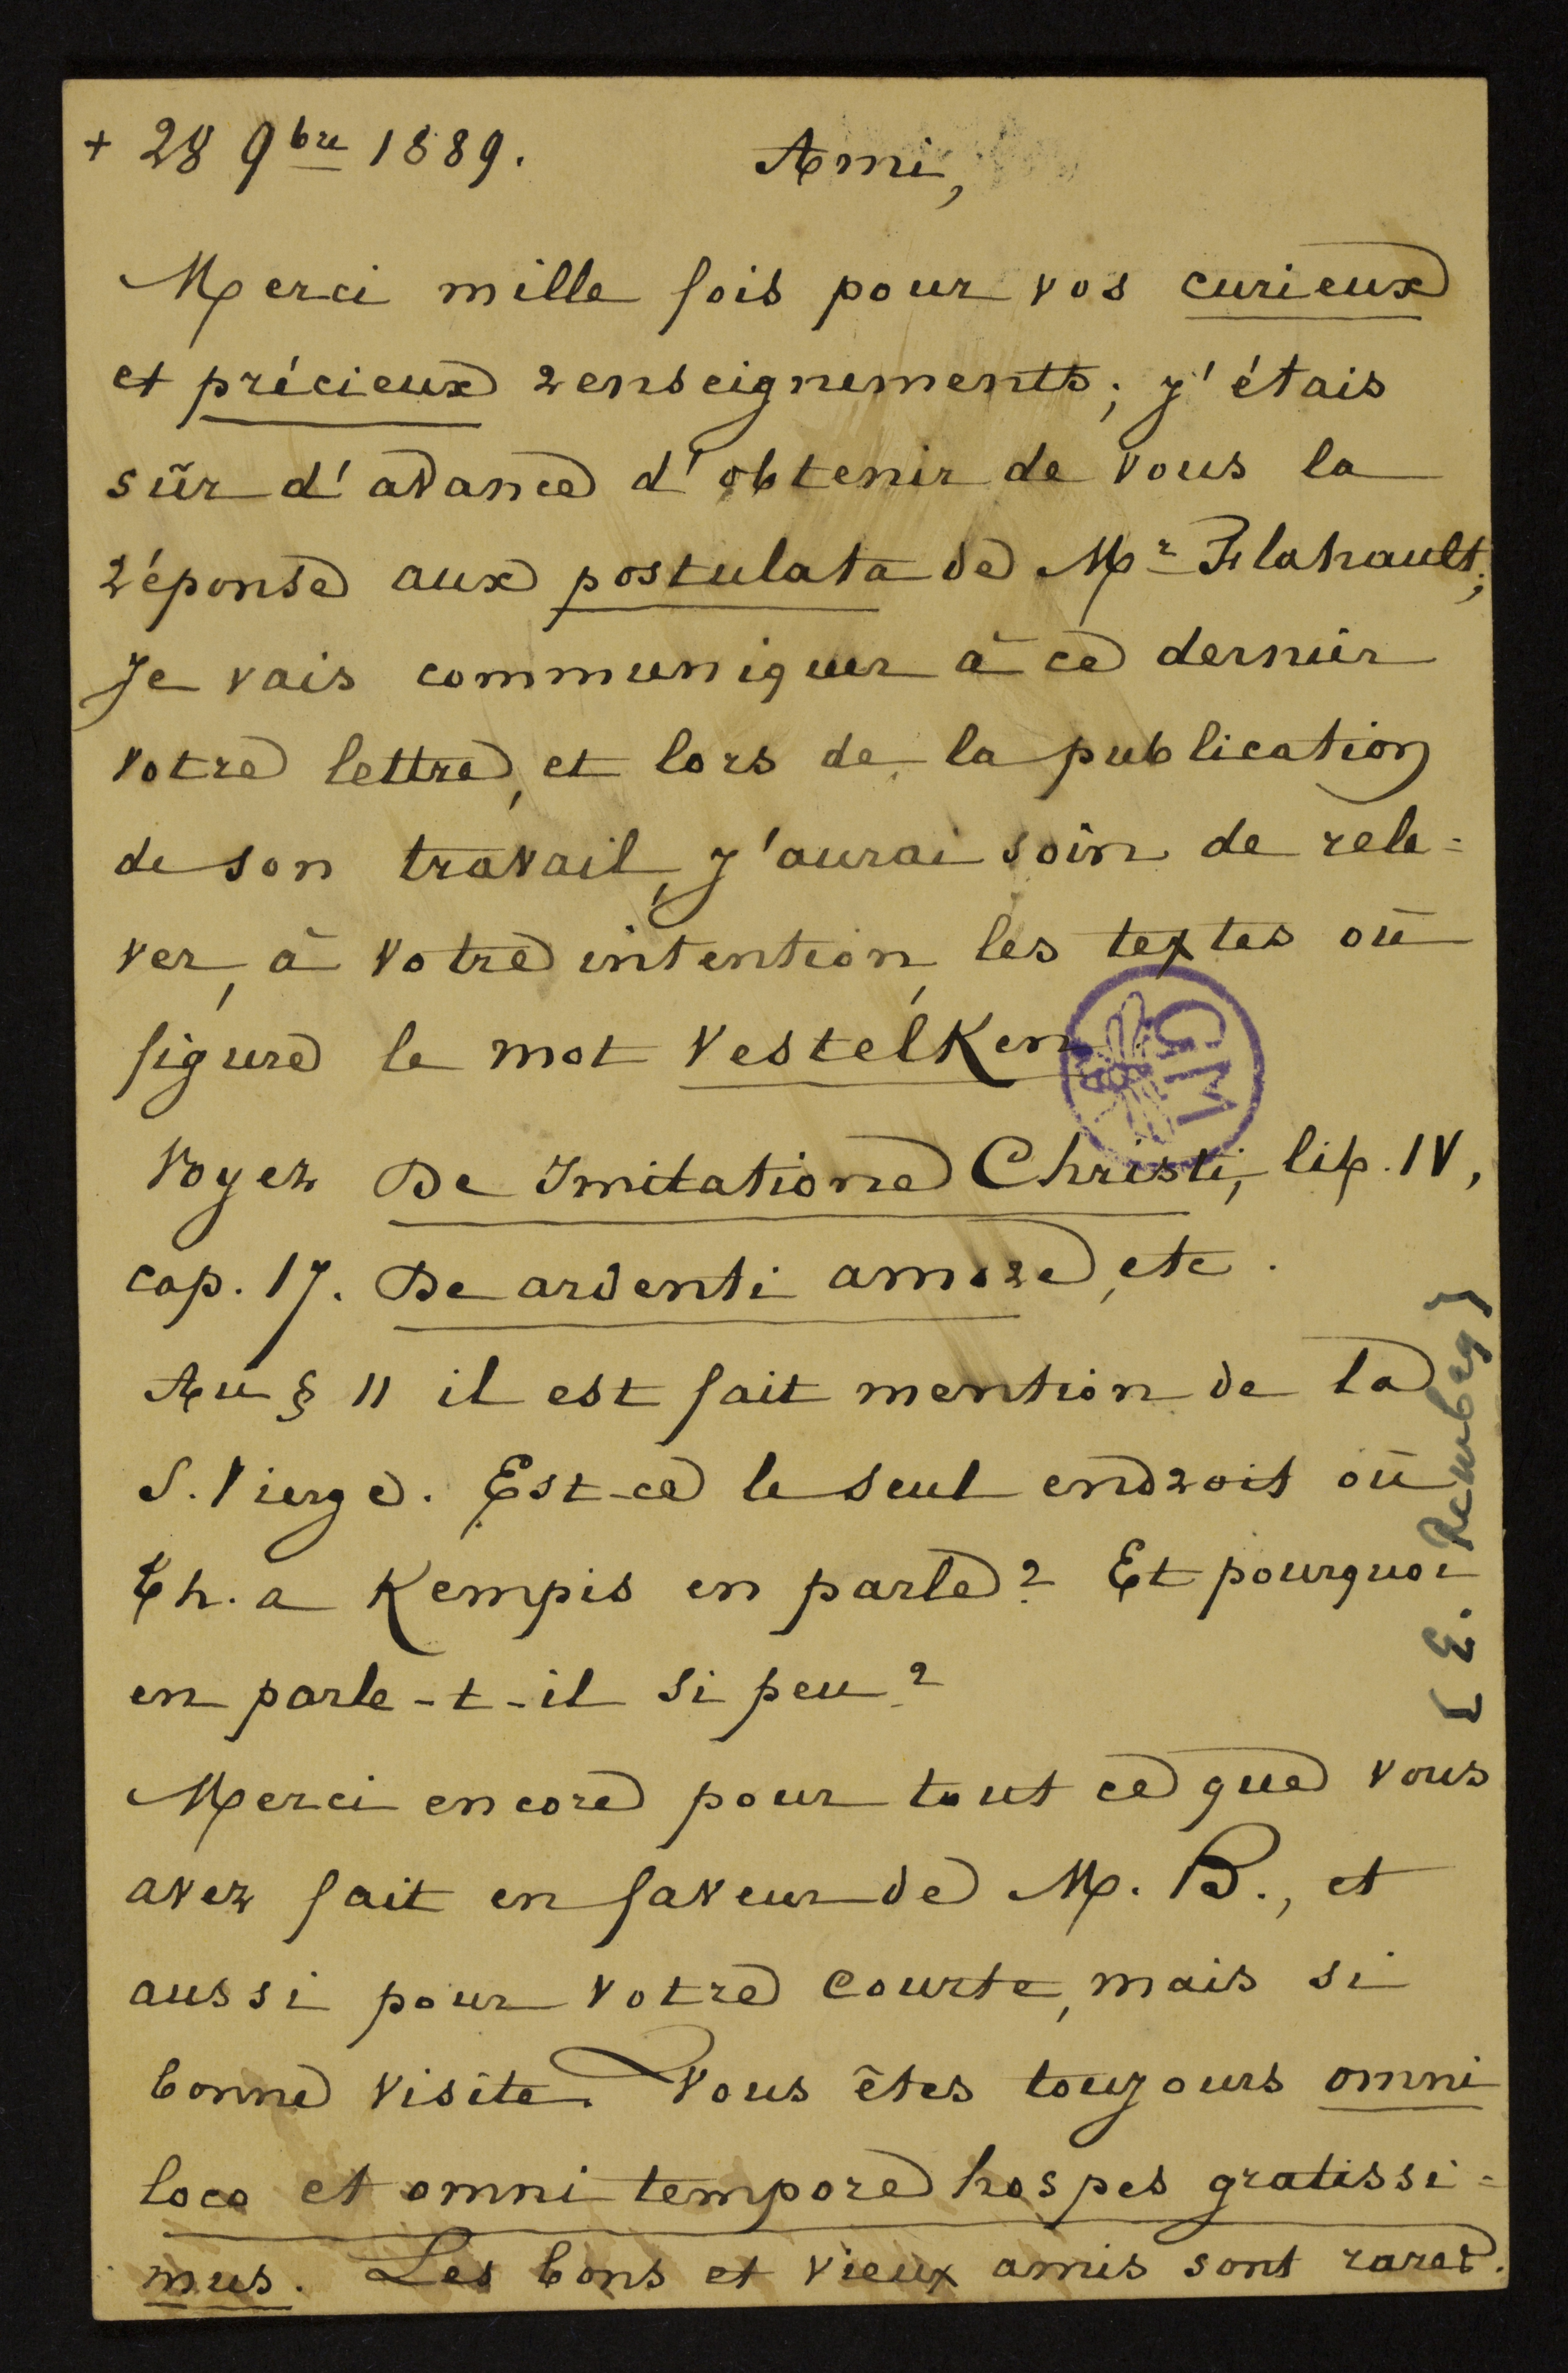 + 28 9bre 1889. Ami,
Merci mille fois pour vos curieux
et précieux renseignements; j'étais
sûr d'avance d'obtenir de vous la
réponse aux postulata de Mr Flahault;
Je vais communiquer à ce dernier
votre lettre, et lors de la publication
de son travail, j'aurai soin de rele=
ver, à votre intention, les textes où
figure le mot Vestelken
Voyez De Imitatione Christi, lib. IV,
cap. 17. De ardenti amore, etc.
Au § 11 il est fait mention de la
S. Vierge. Est-ce le seul endroit où
Th. a Kempis en parle? Et pourquoi
en parle-t-il si peu?
Merci encore pour tout ce que vous
avez fait en faveur de M. B., et
aussi pour votre courte, mais si
bonne visite. Vous êtes toujours omni
loco et omni tempore hospes gratissi=
mus. Les bons et vieux amis sont rares.
[E. Rembry]
GM